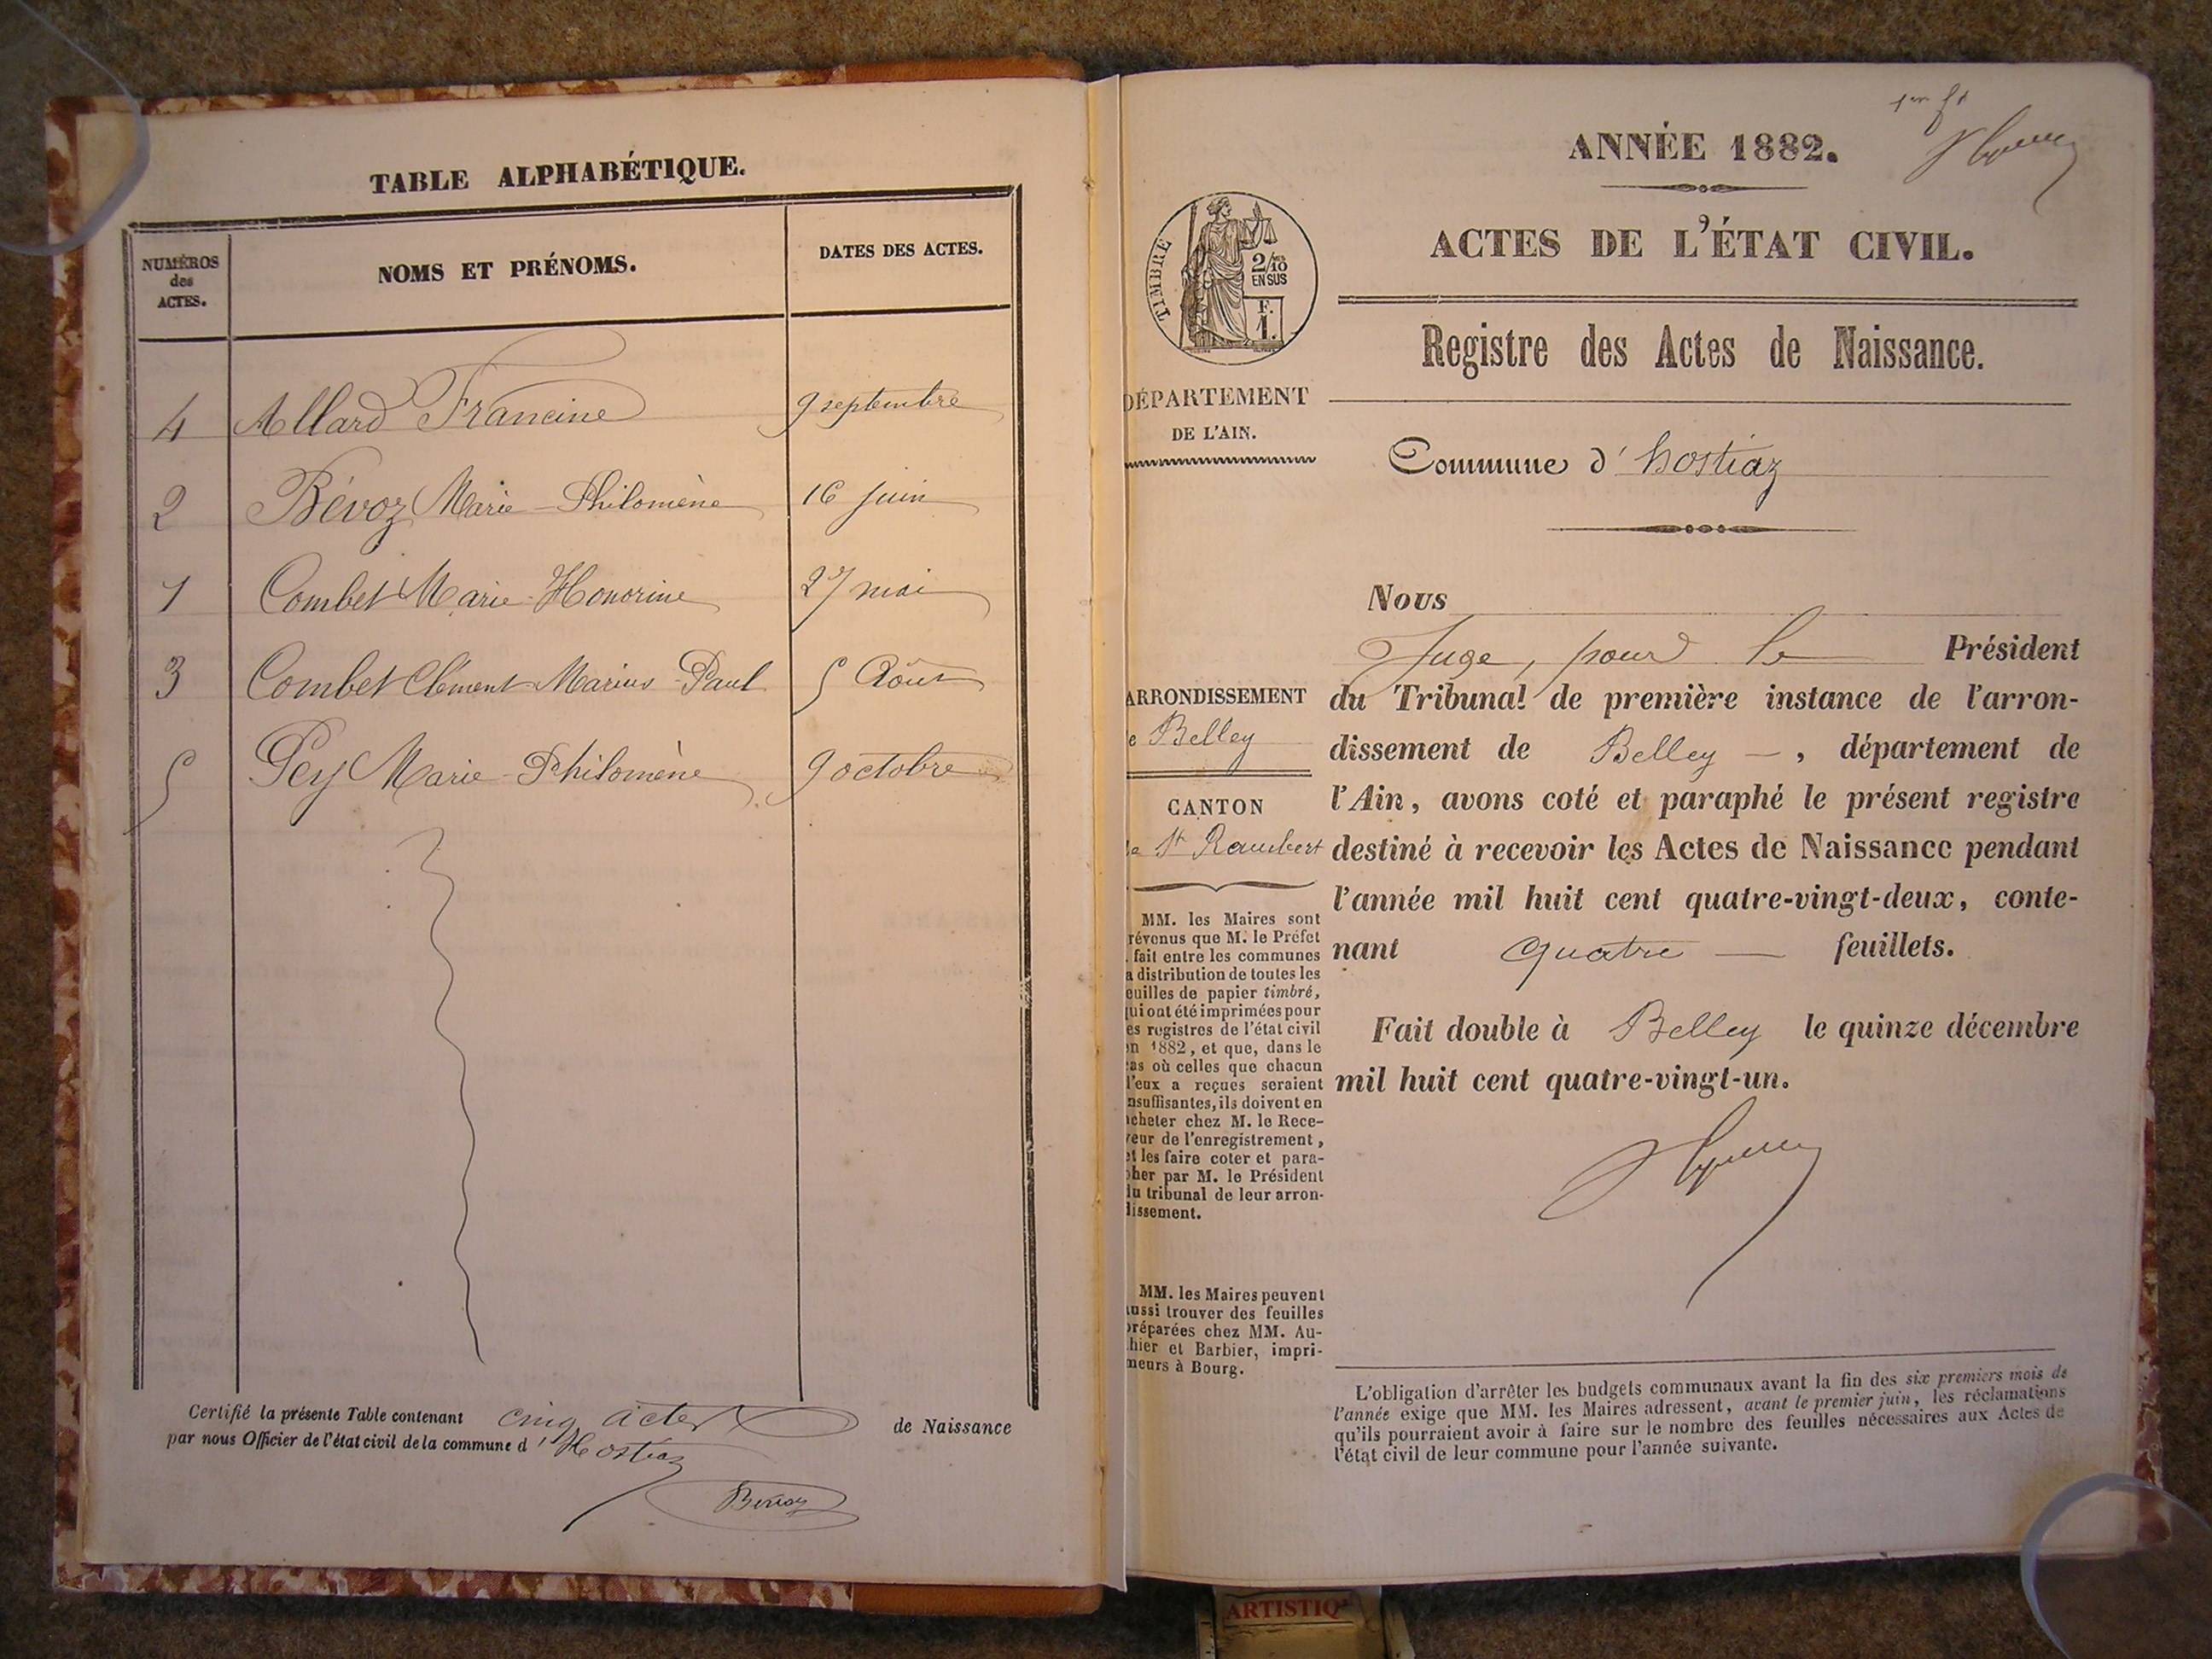 TABLE ALPHABÉTIQUE.
NUMÉROS
des
ACTES.
NOMS ET PRÉNOMS.
DATES DES ACTES.
4 Allard Francine 9 septembre
2 Bévoz Marie-Philomène 16 juin
1 Combet Marie-Honorine 27 mai
3 Combet Clément-Marius-Paul 5 Août
5 Pey Marie-Philomène 9 octobre
Certifié la présente Table contenant cinq actes de Naissance
par nous Officier de l'état civil de la commune d'Hostiaz
Bévoz
ANNÉE 1882.
ACTES DE L'ÉTAT CIVIL.
TIMBRE
2/10
EN SUS
F.
1.
Registre des Actes de Naissance.
DÉPARTEMENT
DE L'AIN.
Commune d'hostiaz
ARRONDISSEMENT
e Belley
CANTON
de St Rambert
MM. les Maires sont
révenus que M. le Préfet
fait entre les communes
a distribution de toutes les
euilles de papier timbré,
qui ont été imprimées pour
es registres de l'état civil
en 1882, et que, dans le
cas où celles que chacun
d'eux a reçues seraient
nsuffisantes, ils doivent en
acheter chez M. le Rece-
veur de l'enregistrement,
et les faire coter et para-
pher par M. le Président
du tribunal de leur arron-
dissement.
MM. les Maires peuvent
aussi trouver des feuilles
préparées chez MM. Au-
thier et Barbier, impri-
meurs à Bourg.
Nous
Juge, pour le Président
du Tribunal de première instance de l'arron-
dissement de Belley —, département de
l'Ain, avons coté et paraphé le présent registre
destiné à recevoir les Actes de Naissance pendant
l'année mil huit cent quatre-vingt-deux, conte-
nant quatre — feuillets.
Fait double à Belley le quinze décembre
mil huit cent quatre-vingt-un.
L'obligation d'arrêter les budgets communaux avant la fin des six premiers mois de
l'année exige que MM. les Maires adressent, avant le premier juin, les réclamations
qu'ils pourraient avoir à faire sur le nombre des feuilles nécessaires aux Actes de
l'état civil de leur commune pour l'année suivante.
ARTISTIQ